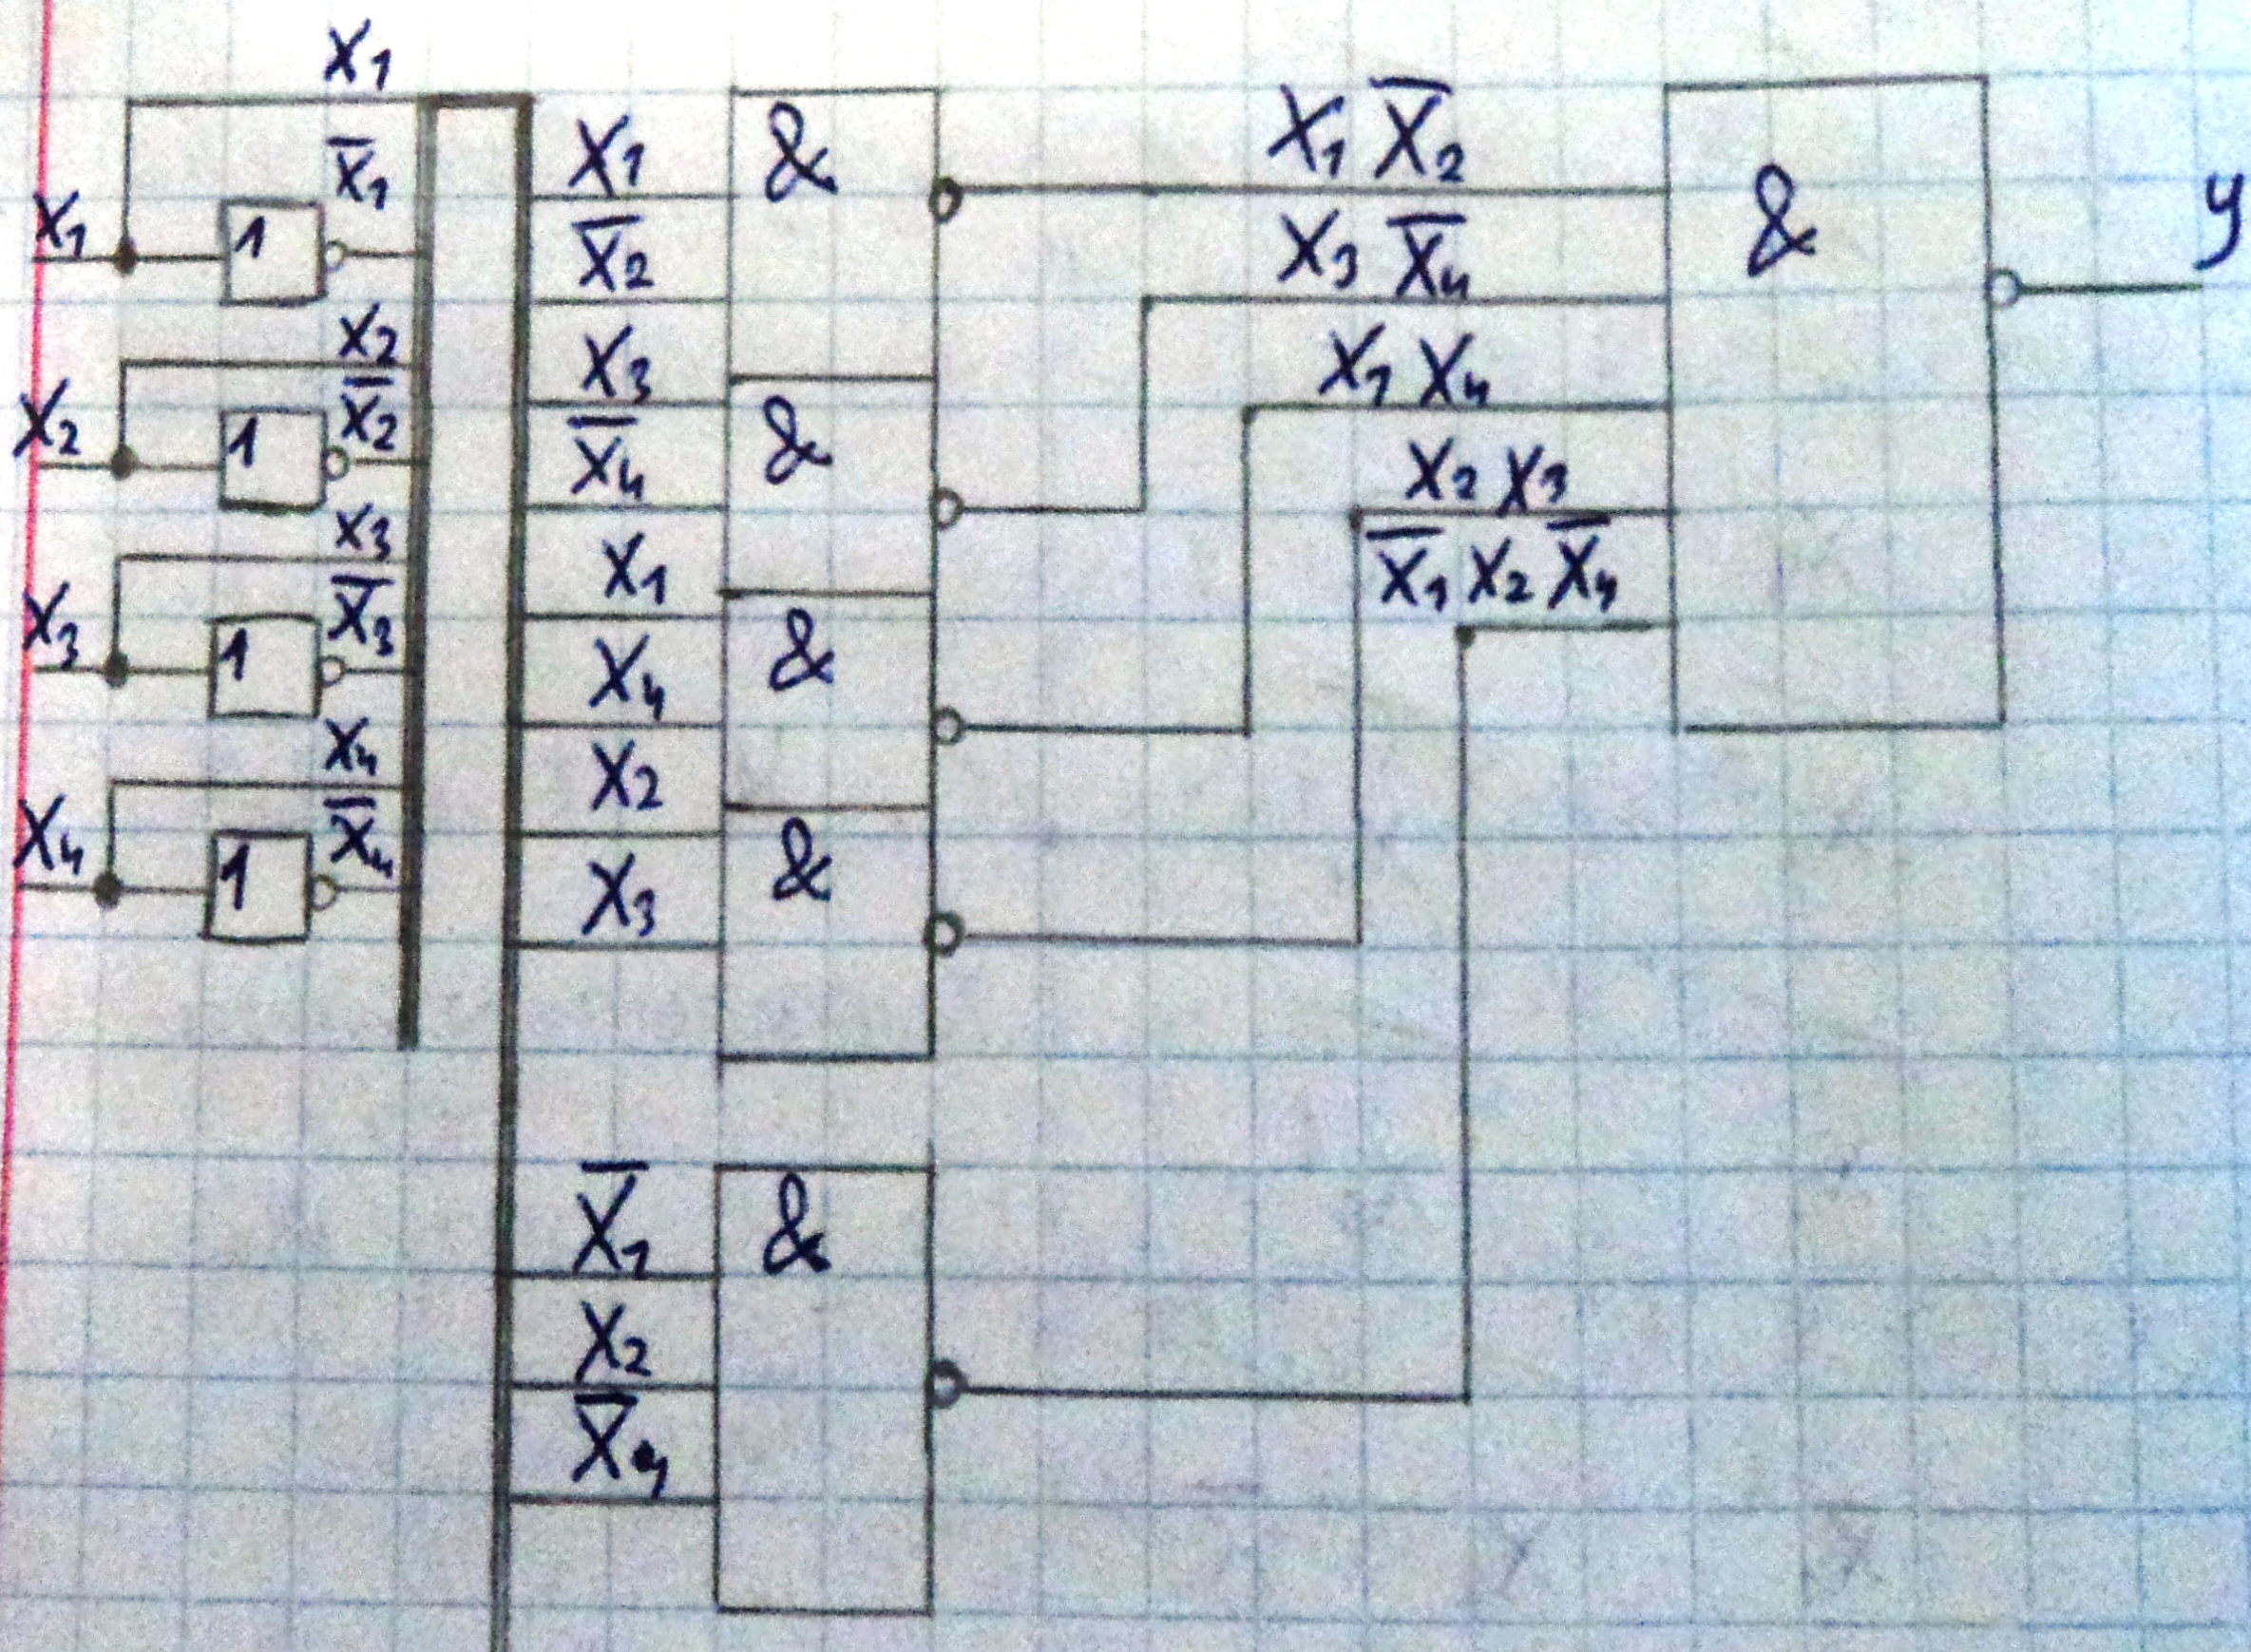 X1
X̅1
X1
1
X2
X̅2
X2
1
X3
X̅3
X3
1
X4
X̅4
X4
1
X1
X̅2
&
X3
X̅4
&
X1
X4
&
X2
X3
&
X̅1
X2
X̅4
&
X1 X̅2
X3 X̅4
X1 X4
X2 X3
X̅1 X2 X̅4
&
y